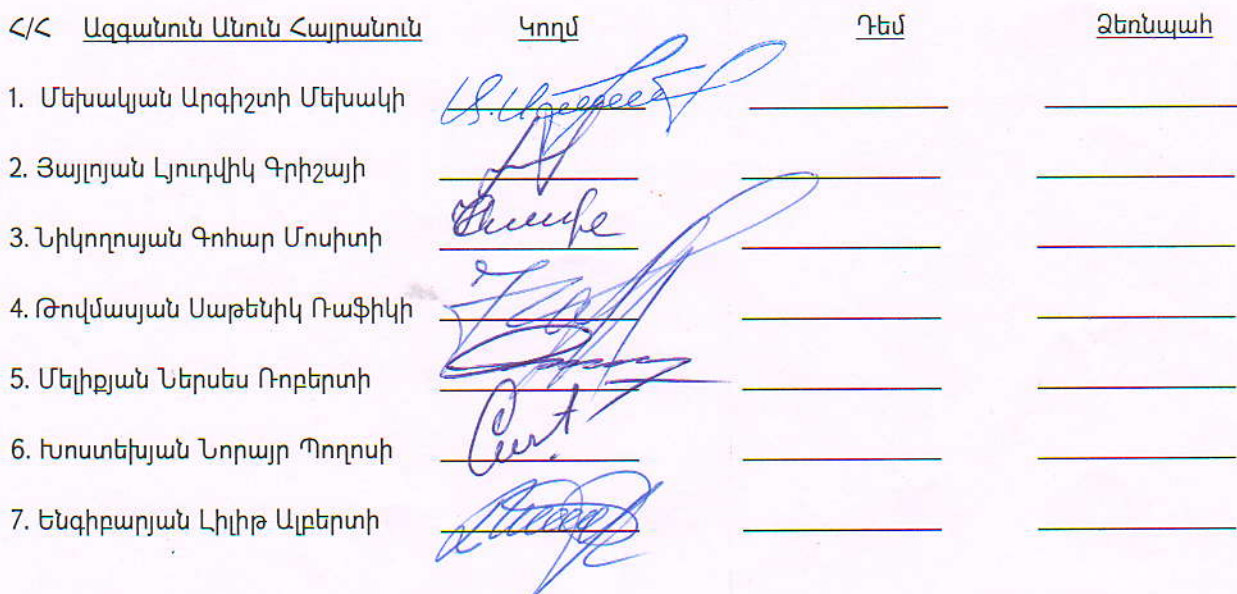 Հ/Հ Ազգանուն Անուն Հայրանուն Կողմ Դեմ Ձեռնպահ
1. Մեխակյան Արգիշտի Մեխակի
2. Յայլոյան Լյուդվիկ Գրիշայի
3. Նիկողոսյան Գոհար Մոսիտի
4. Թովմասյան Սաթենիկ Ռաֆիկի
5. Մելիքյան Ներսես Ռոբերտի
6. Խոստեխյան Նորայր Պողոսի
7. Ենգիբարյան Լիլիթ Ալբերտի